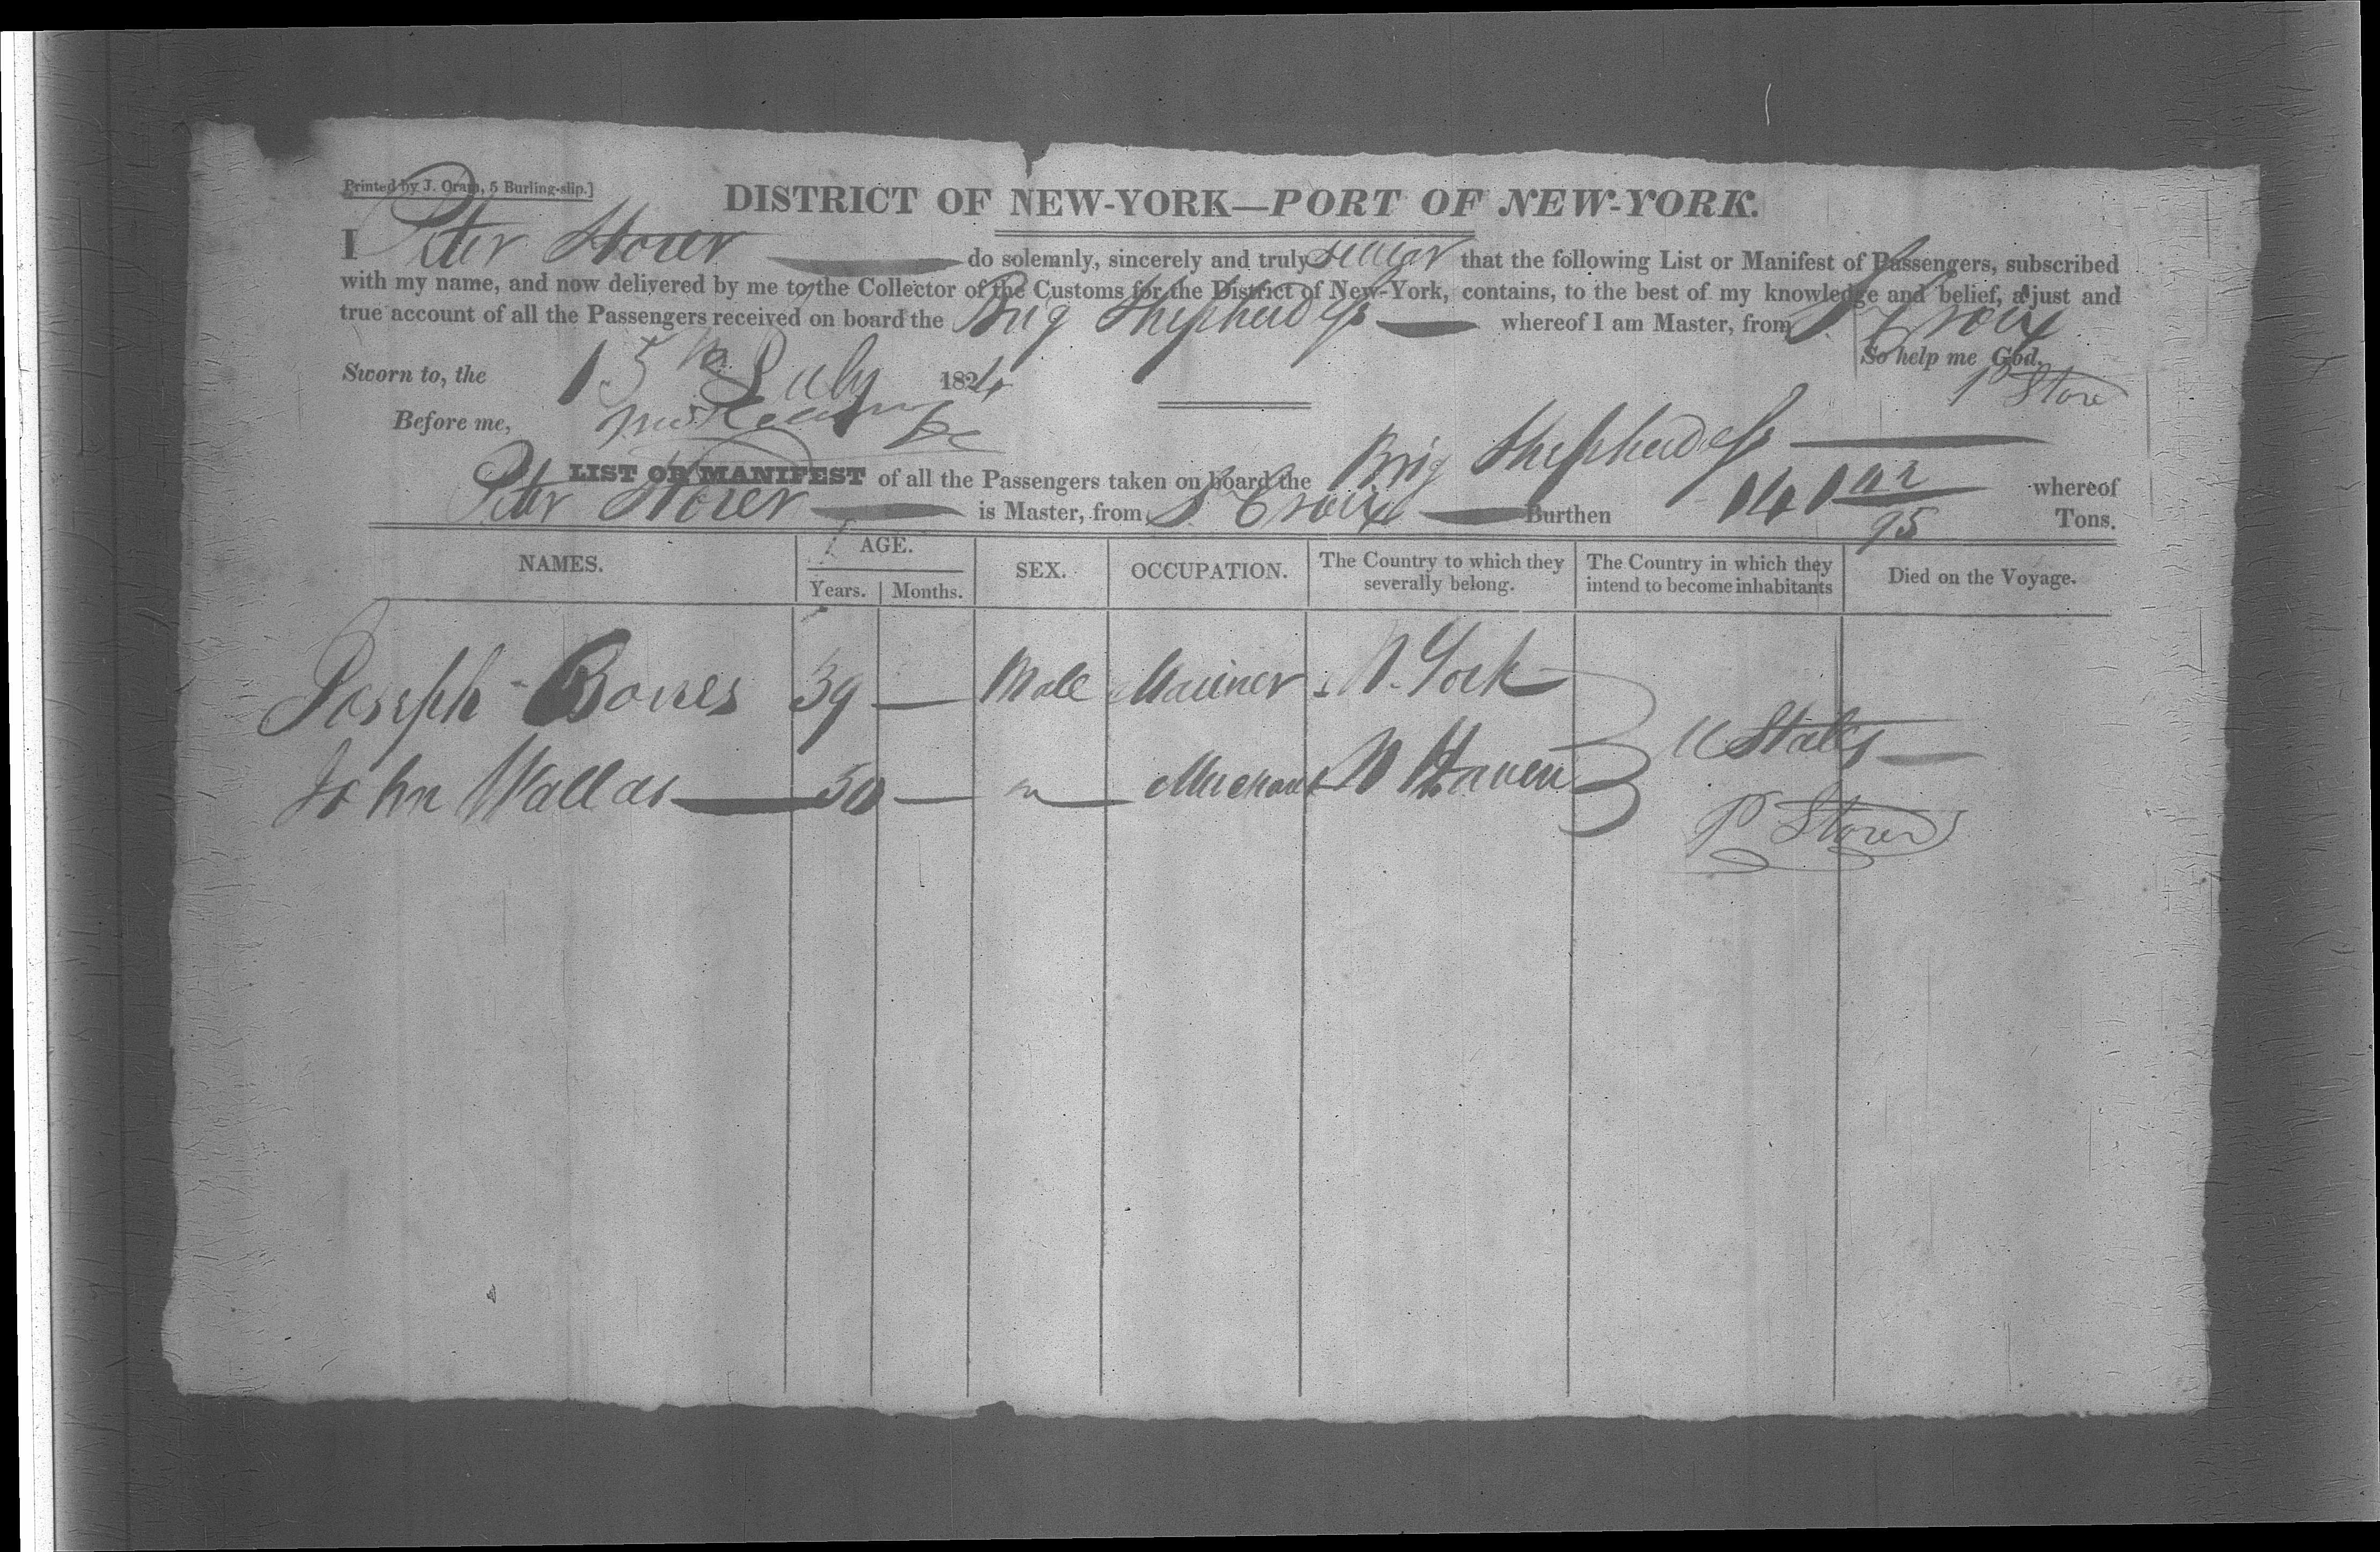 Printed by J. Oram, 5 Burling-slip.]
DISTRICT OF NEW-YORK—PORT OF NEW-YORK.
I Peter Storer do solemnly, sincerely and truly swear that the following List or Manifest of Passengers, subscribed
with my name, and now delivered by me to the Collector of the Customs for the District of New-York, contains, to the best of my knowledge and belief, a just and
true account of all the Passengers received on board the Brig Shepherdess whereof I am Master, from St Croix
So help me God.
Sworn to, the 15th July 1824
P Storer
Before me,
LIST OR MANIFEST of all the Passengers taken on board the Brig Shepherdess whereof
Peter Storer is Master, from St Croix Burthen 141 42/95 Tons.
NAMES. AGE. SEX. OCCUPATION. The Country to which they severally belong. The Country in which they intend to become inhabitants Died on the Voyage.
Years. Months.
Joseph Bones 39 — Male Mariner N. York
U States
John Wallas 50 — " Merchant N Haven
P Storer